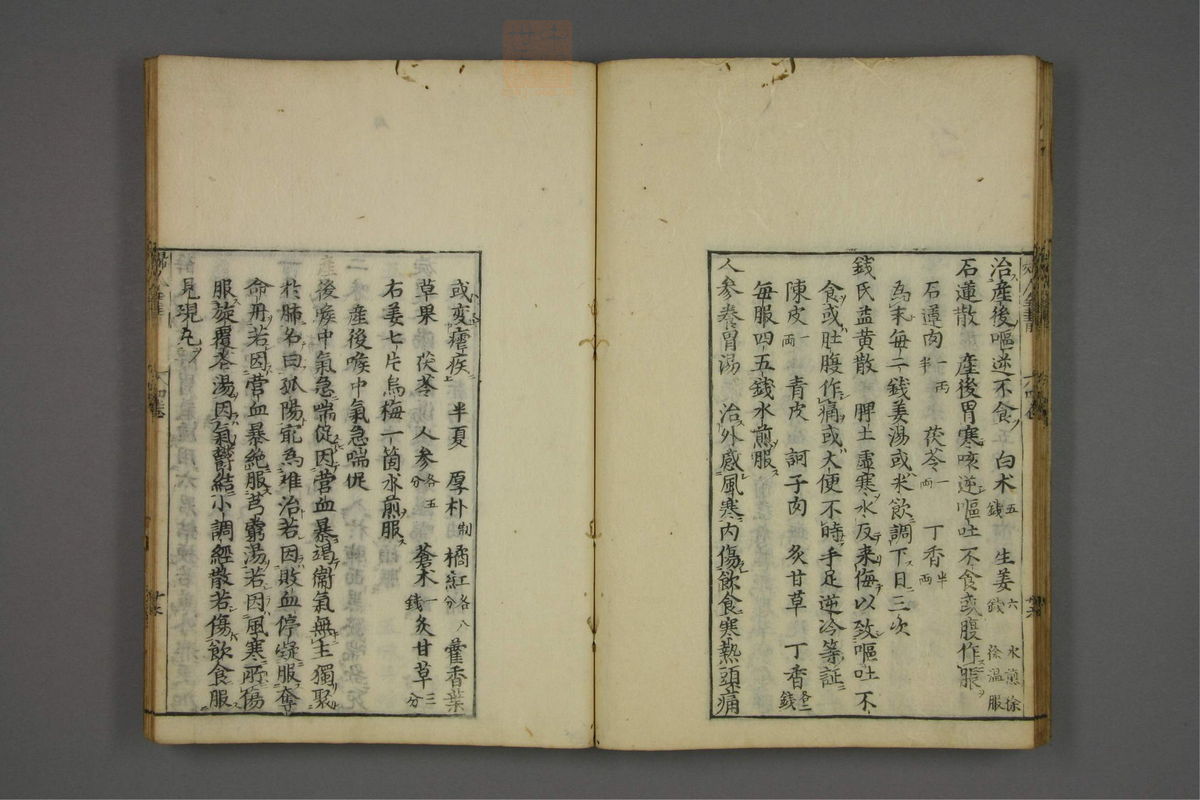 治産後嘔逆不食 白术五錢 生姜六錢 水煎徐徐温服
石蓮散 産後胃寒咳逆嘔吐不食或腹作脹
石蓮肉一両半 茯苓一両 丁香半両
為末每二錢姜湯或米飲調下日三次
錢氏益黄散 脾土虚寒水反来侮以致嘔吐不
食或肚腹作痛或大便不時手足逆冷等証
陳皮一両 青皮 訶子肉 炙甘草 丁香各二錢
每服四五錢水煎服
人参養胃湯 治外感風寒内傷飲食寒熱頭痛
或変瘧疾
半夏 厚朴制 橘紅各八分 藿香葉
草果 茯苓 人参各五分 蒼术一錢 炙甘草三分
右姜七片烏梅一箇水煎服
二 産後喉中氣急喘促
産後喉中氣急喘促因営血暴竭衞氣無主獨聚
於肺名曰孤陽㝡為难治若因敗血停凝服奪
命丹若因営血暴絶服芎藭湯若因風寒所傷
服旋覆花湯因氣欝結小調經散若傷飲食服
見晛丸